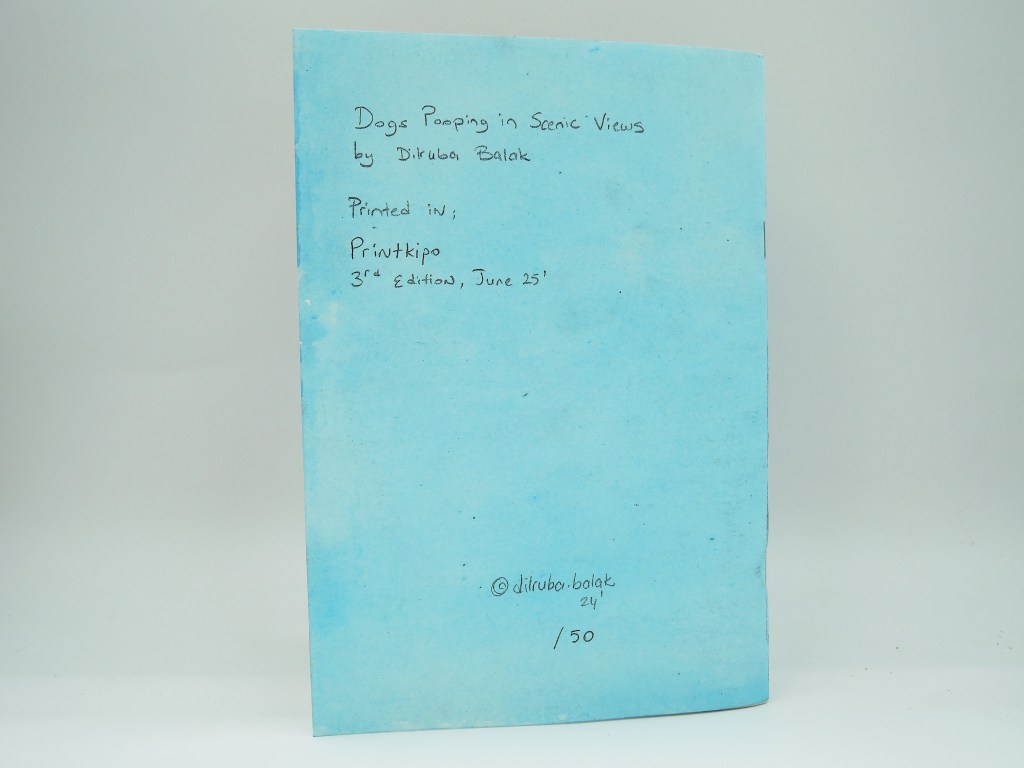 Dogs Pooping in Scenic Views
by Dilruba Balak
Printed in;
Printkipo
3rd Edition, June 25'
© dilruba.balak
24'
/50